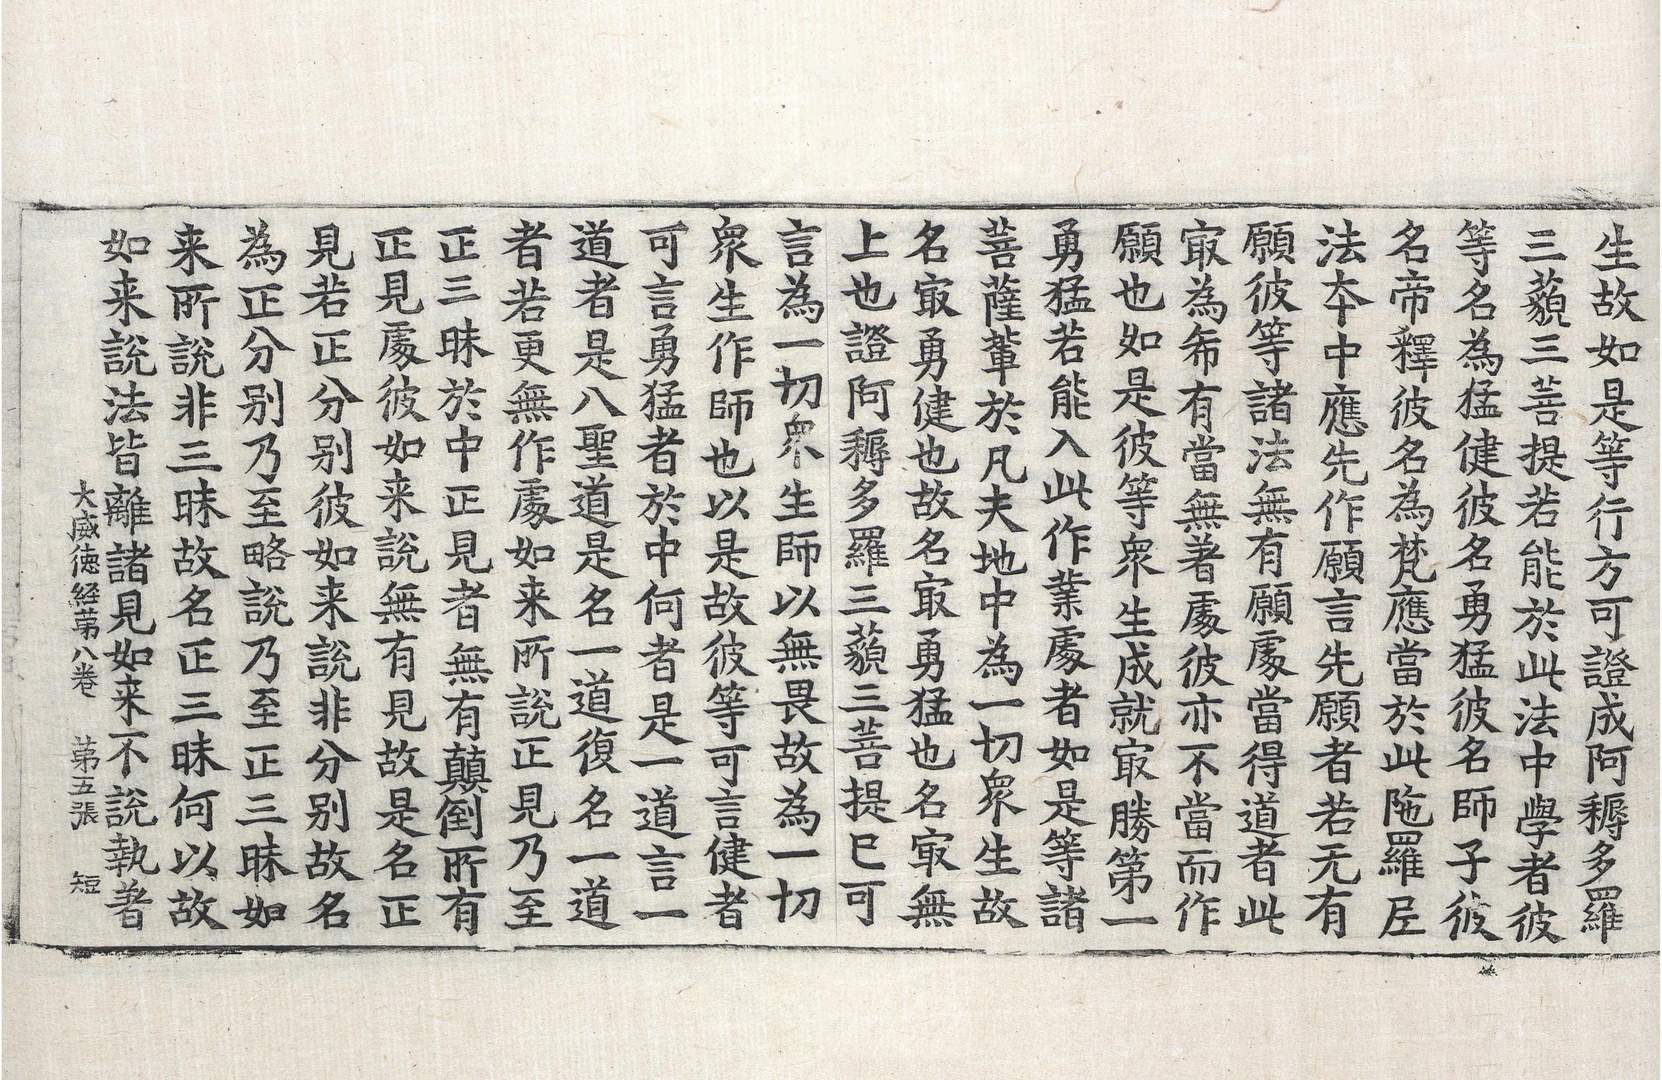 生故如是等行方可證成阿耨多羅
三藐三菩提若能於此法中學者彼
等名為猛健彼名勇猛彼名師子彼
名帝釋彼名為梵應當於此陁羅𡰱
法夲中應先作願言先願者若无有
願彼等諸法無有願處當得道者此
㝡為希有當無著處彼亦不當而作
願也如是彼等衆生成就㝡勝第一
勇猛若能入此作業處者如是等諸
菩薩輩於凡夫地中為一切衆生故
名㝡勇健也故名㝡勇猛也名㝡無
上也證阿耨多羅三藐三菩提已可
言為一切衆生師以無畏故為一切
衆生作師也以是故彼等可言健者
可言勇猛者於中何者是一道言一
道者是八聖道是名一道復名一道
者若更無作處如来所說正見乃至
正三昧於中正見者無有顛倒所有
正見處彼如来說無有見故是名正
見若正分別彼如来說非分別故名
為正分別乃至略說乃至正三昧如
来所說非三昧故名正三昧何以故
如来說法皆離諸見如来不說執著
大威德経苐八卷 苐五張 短